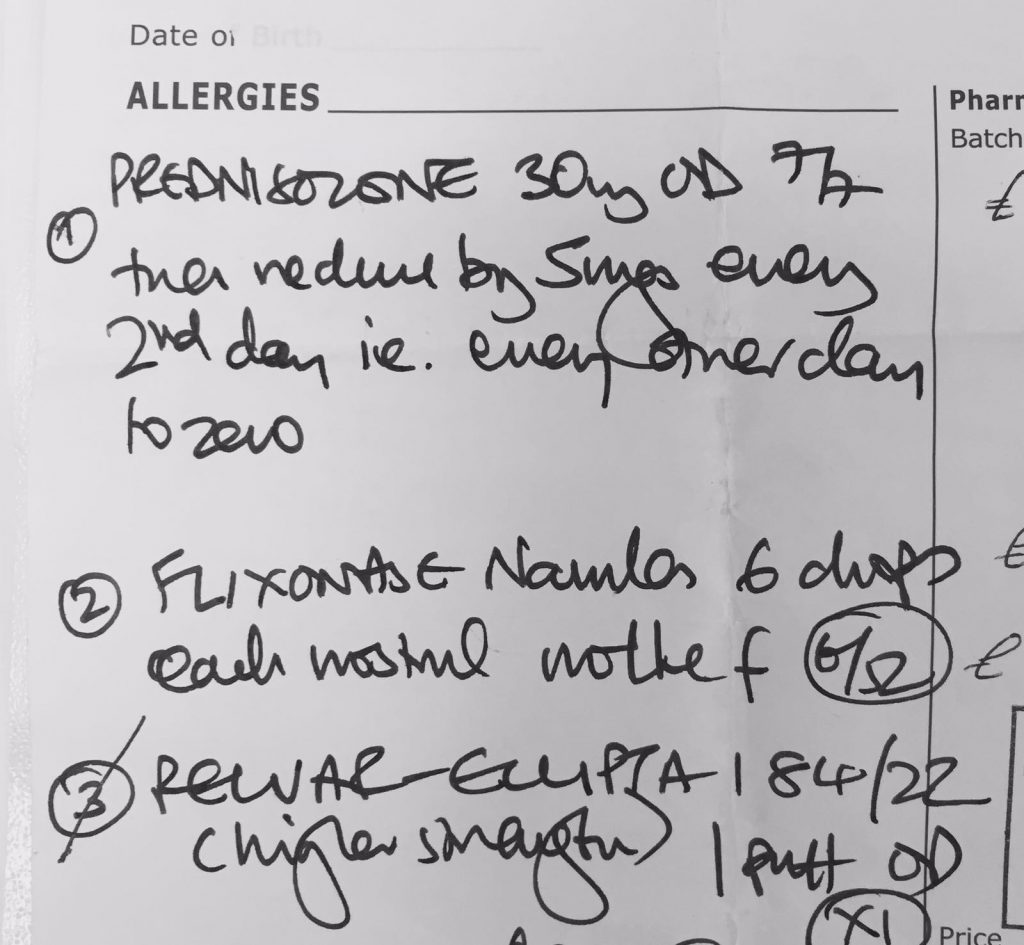 Date of Birth
ALLERGIES
Pharm
Batch
① PREDNISOLONE 30mg OD 7/7
then reduce by 5mgs every
2nd day i.e. every other day
to zero
② FLIXONASE Nasules 6 drops
each nostril nocte f 6/52
③ RELVAR ELLIPTA 184/22
(higher strength) 1 puff OD
X1
Price